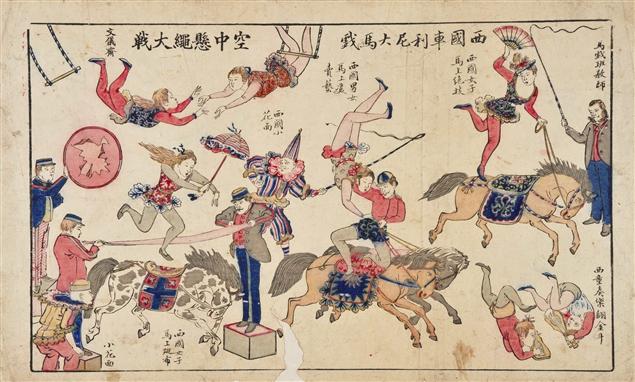 西國車利尼大馬戲
空中懸繩大戰
馬戲班教師
西國女子
馬上絕技
西國男女
馬上
賣藝
西國小
花面
文儀齋
西童奏樂翻金斗
西國女子
馬上跳布
小花面